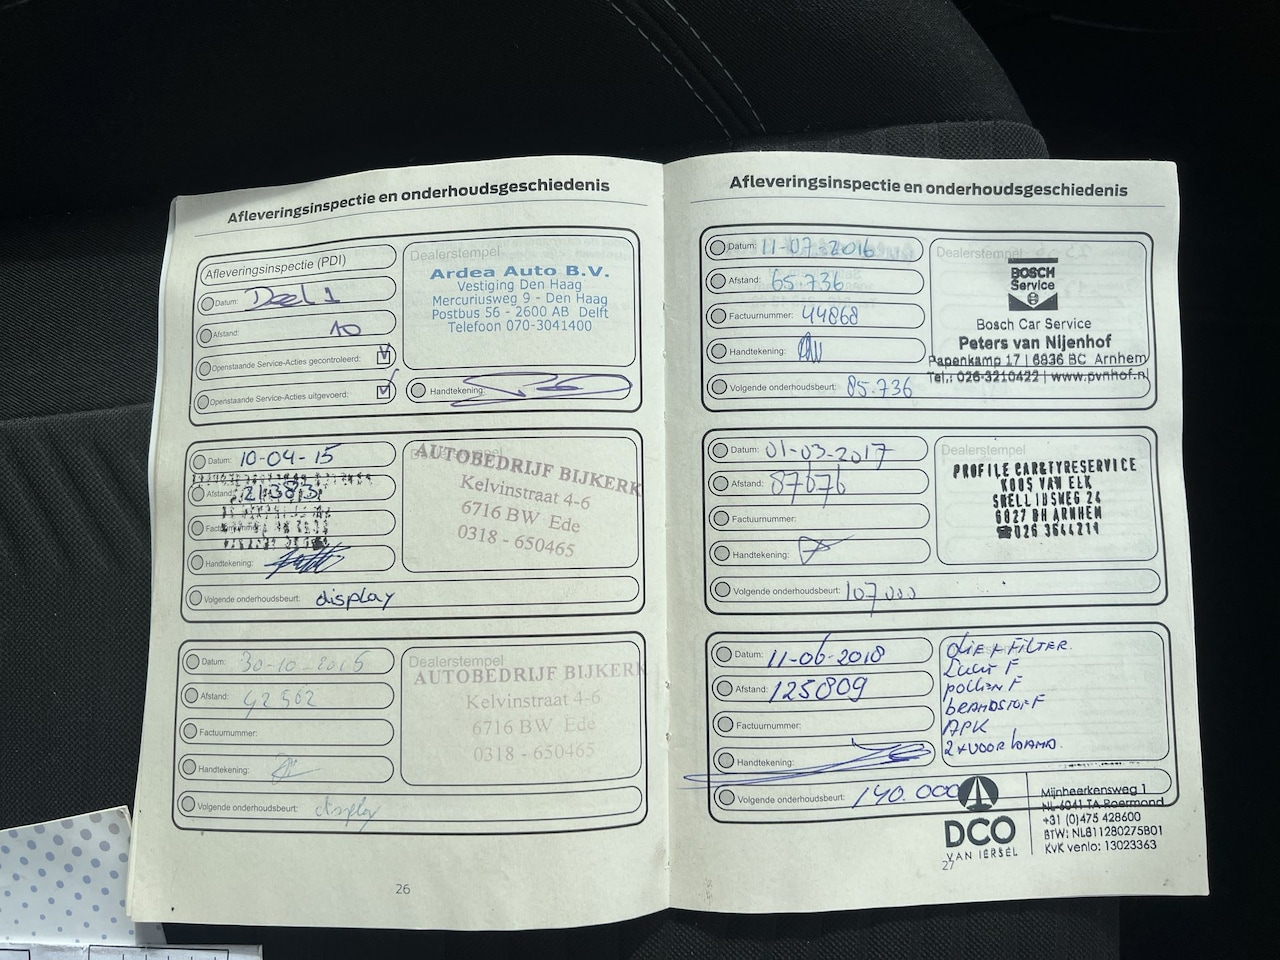 Afleveringsinspectie en onderhoudsgeschiedenis
Afleveringsinspectie (PDI)
Datum: Deel 1
Afstand: 10
Openstaande Service-Acties gecontroleerd:
Openstaande Service-Acties uitgevoerd:
Dealerstempel
Ardea Auto B.V.
Vestiging Den Haag
Mercuriusweg 9 - Den Haag
Postbus 56 - 2600 AB Delft
Telefoon 070-3041400
Handtekening:
Datum: 10-04-15
Afstand: 21.383
Factuurnummer:
Handtekening:
Volgende onderhoudsbeurt: display
Dealerstempel
AUTOBEDRIJF BIJKERK
Kelvinstraat 4-6
6716 BW Ede
0318 - 650465
Datum: 30-10-2015
Afstand: 42502
Factuurnummer:
Handtekening:
Volgende onderhoudsbeurt: display
Dealerstempel
AUTOBEDRIJF BIJKERK
Kelvinstraat 4-6
6716 BW Ede
0318 - 650465
26
Afleveringsinspectie en onderhoudsgeschiedenis
Datum: 11-07-2016
Afstand: 65.736
Factuurnummer: 44868
Handtekening:
Volgende onderhoudsbeurt: 85.736
Dealerstempel
BOSCH
Service
Bosch Car Service
Peters van Nijenhof
Papenkamp 17 | 6836 BC Arnhem
Tel.: 026-3210422 | www.pvnhof.nl
Datum: 01-03-2017
Afstand: 87676
Factuurnummer:
Handtekening:
Volgende onderhoudsbeurt: 107000
Dealerstempel
PROFILE CAR&TYRESERVICE
KOOS VAN ELK
SNELLIUSWEG 24
6827 DH ARNHEM
☎026 3644211
Datum: 11-06-2018
Afstand: 125809
Factuurnummer:
Handtekening:
Volgende onderhoudsbeurt: 140.000
OLIE + FILTER.
Lucht F
pollen F
brandstof F
APK
2 x voorband.
DCO
VAN IERSEL
Mijnheerkensweg 1
NL-6041 TA Roermond
+31 (0)475 428600
BTW: NL811280275B01
KvK venlo: 13023363
27